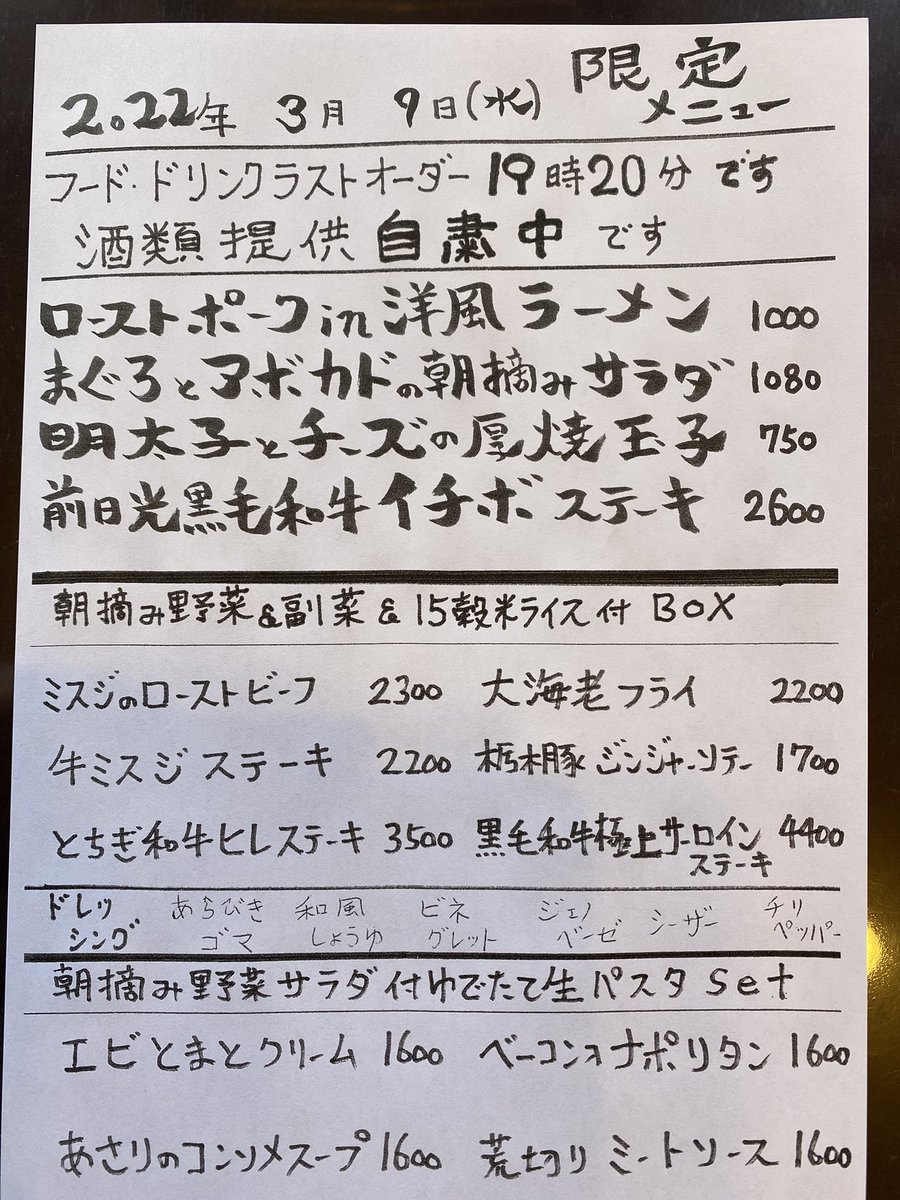 2022年 3月 9日(水) 限定メニュー
フード・ドリンクラストオーダー 19時20分 です
酒類提供 自粛中 です
ローストポーク in 洋風ラーメン 1000
まぐろとアボカドの朝摘みサラダ 1080
明太子とチーズの厚焼玉子 750
前日光黒毛和牛イチボステーキ 2600
朝摘み野菜&副菜&15穀米ライス付 BOX
ミスジのローストビーフ 2300 大海老フライ 2200
牛ミスジステーキ 2200 栃木豚ジンジャーソテー 1700
とちぎ和牛ヒレステーキ 3500 黒毛和牛極上サーロインステーキ 4400
ドレッシング あらびきゴマ 和風しょうゆ ビネグレット ジェノベーゼ シーザー チリペッパー
朝摘み野菜サラダ付ゆでたて生パスタ Set
エビとまとクリーム 1600 ベーコンのナポリタン 1600
あさりのコンソメスープ 1600 荒切りミートソース 1600